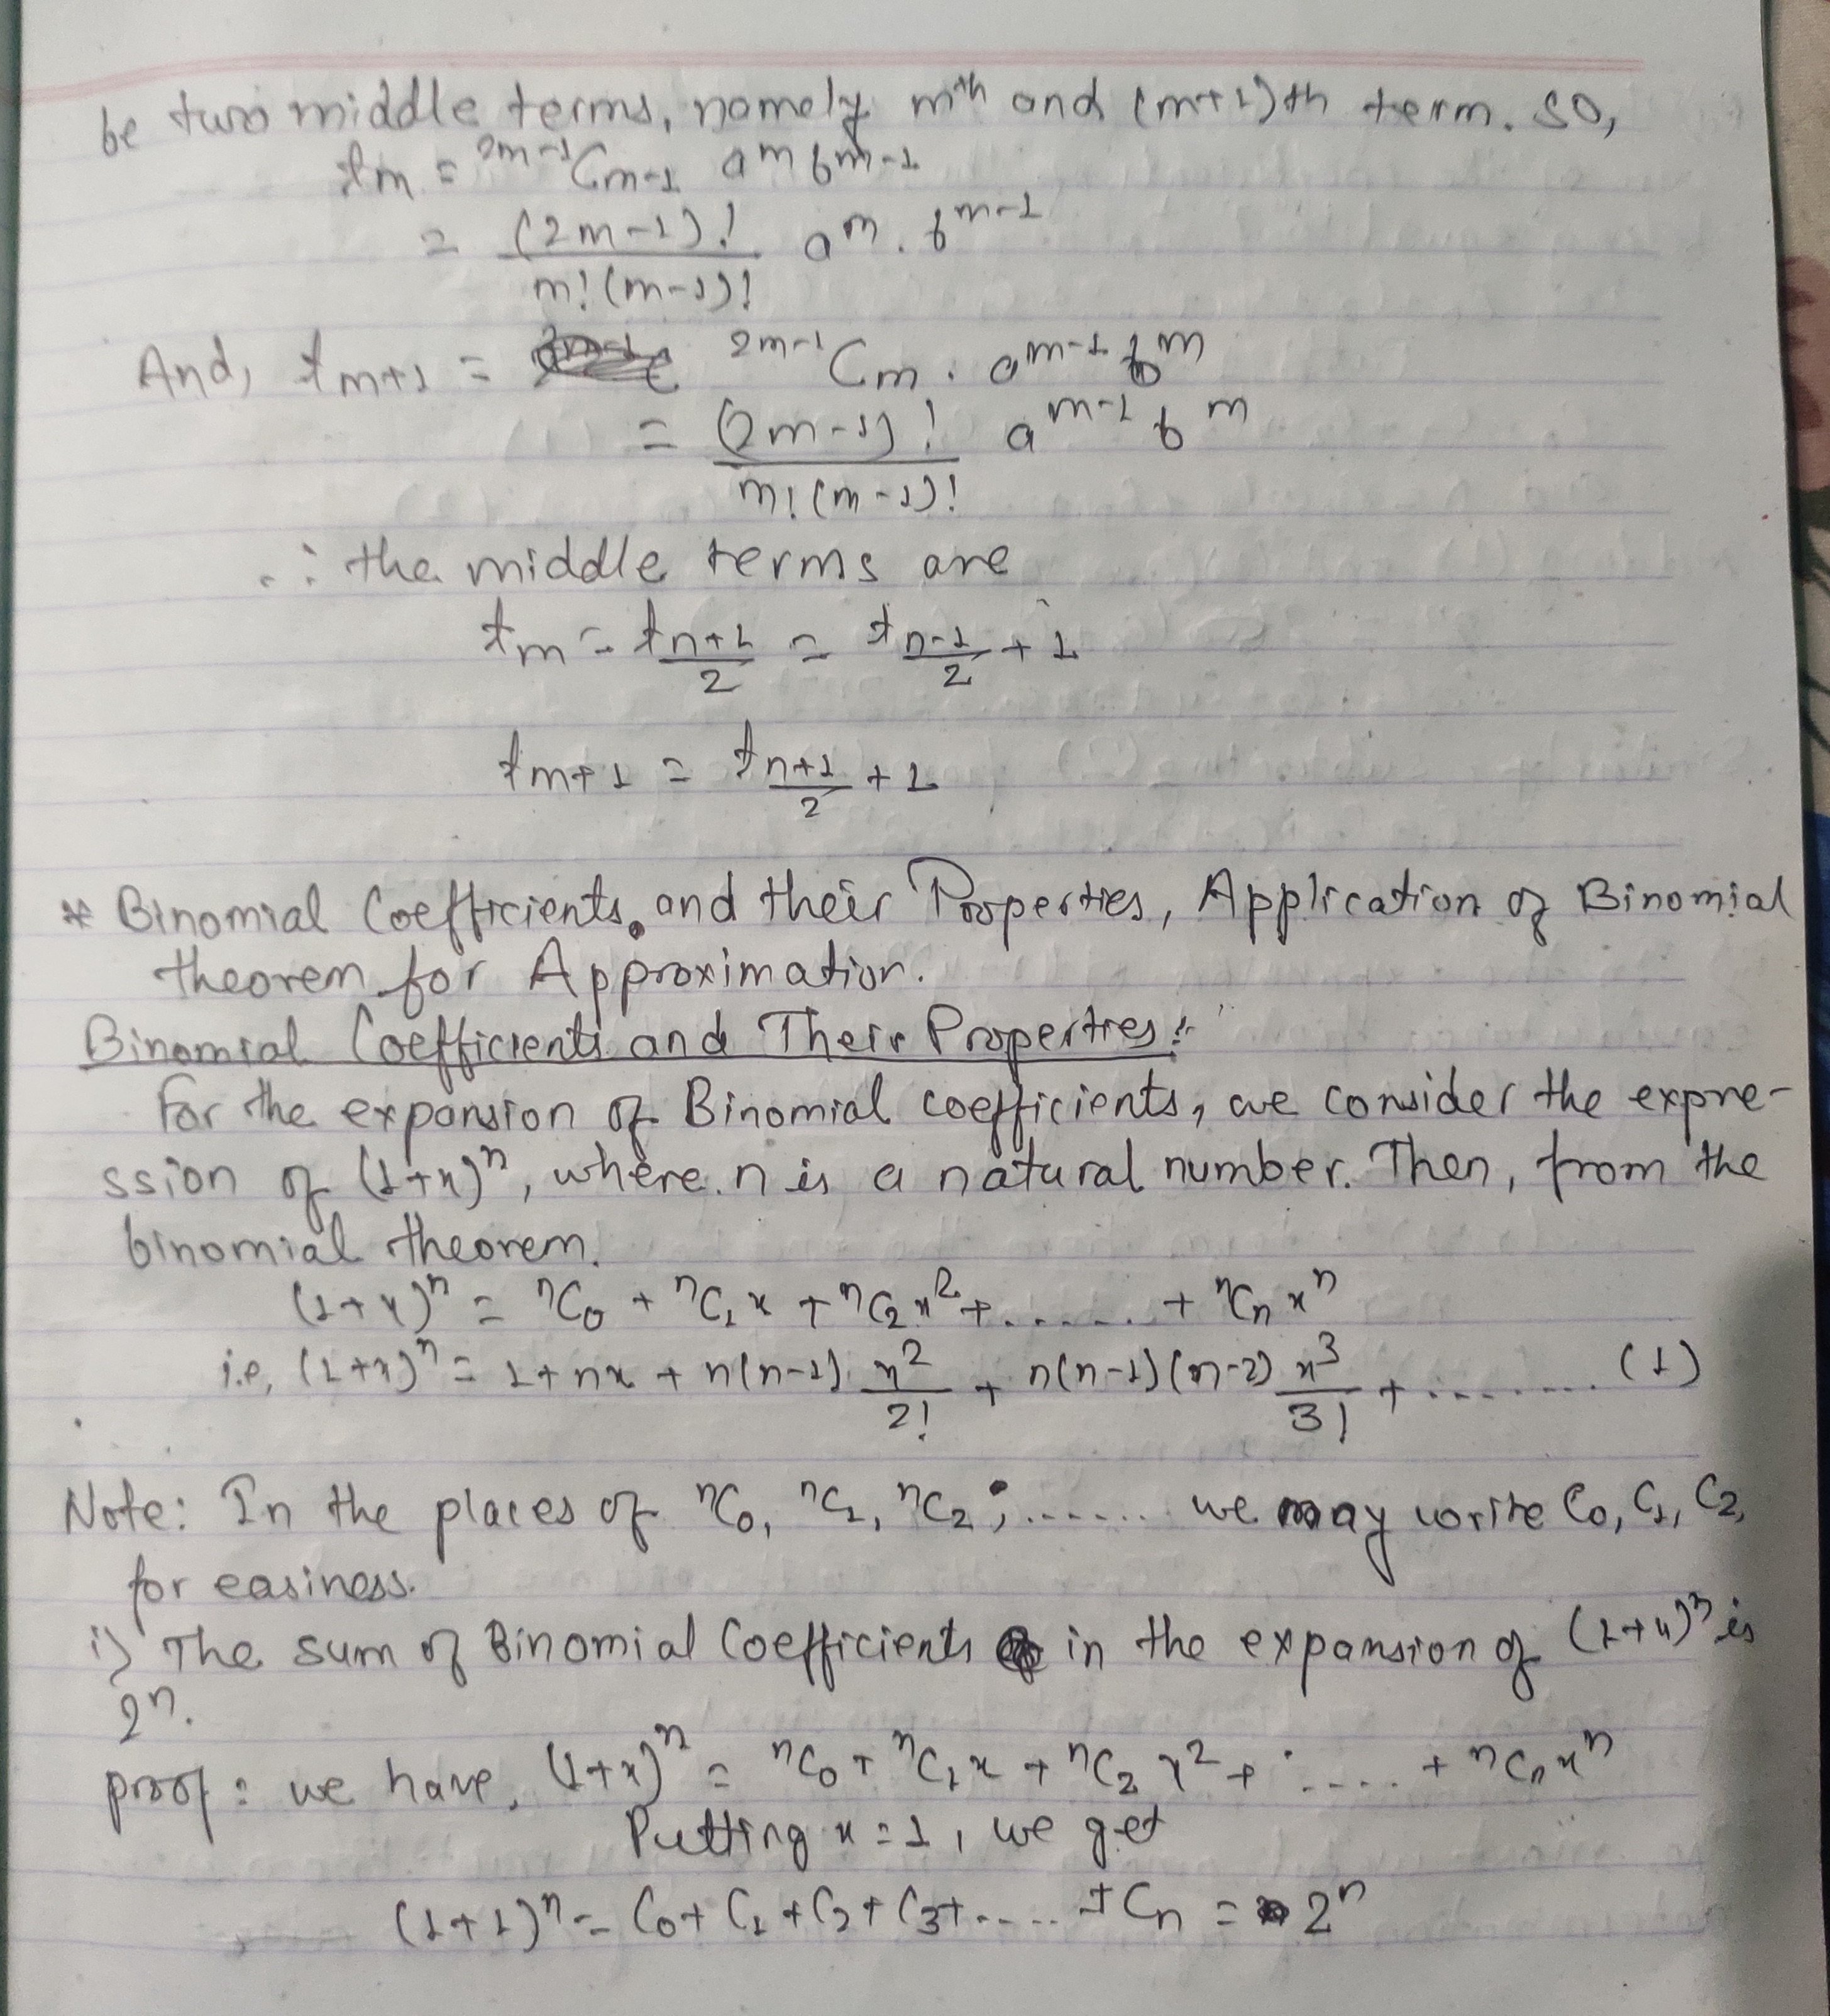 be two middle terms, namely mth and (m+1)th term. So,
tₘ = ²ᵐ⁻¹Cₘ₋₁ aᵐ bᵐ⁻¹
= (2m-1)! / m!(m-1)! aᵐ. bᵐ⁻¹
And, tₘ₊₁ = ²ᵐ⁻¹Cₘ. aᵐ⁻¹ bᵐ
= (2m-1)! / m!(m-1)! aᵐ⁻¹ bᵐ
∴ the middle terms are
tₘ = t_{(n+1)/2} = t_{(n-1)/2 + 1}
tₘ₊₁ = t_{(n+1)/2 + 1}
* Binomial Coefficients and their Properties, Application of Binomial
theorem for Approximation.
Binomial Coefficients and Their Properties:-
For the expansion of Binomial coefficients, we consider the expre-
ssion of (1+x)ⁿ, where n is a natural number. Then, from the
binomial theorem.
(1+x)ⁿ = ⁿC₀ + ⁿC₁x + ⁿC₂x² + ....... + ⁿCₙxⁿ
i.e, (1+x)ⁿ = 1 + nx + n(n-1) x²/2! + n(n-1)(n-2) x³/3! + ......... (1)
Note: In the places of ⁿC₀, ⁿC₁, ⁿC₂, ...... we may write C₀, C₁, C₂,
for easiness.
i) The sum of Binomial Coefficients in the expansion of (1+x)ⁿ is
2ⁿ.
proof: we have, (1+x)ⁿ = ⁿC₀ + ⁿC₁x + ⁿC₂x² + ...... + ⁿCₙxⁿ
Putting x = 1, we get
(1+1)ⁿ = C₀ + C₁ + C₂ + C₃ + ..... + Cₙ = 2ⁿ